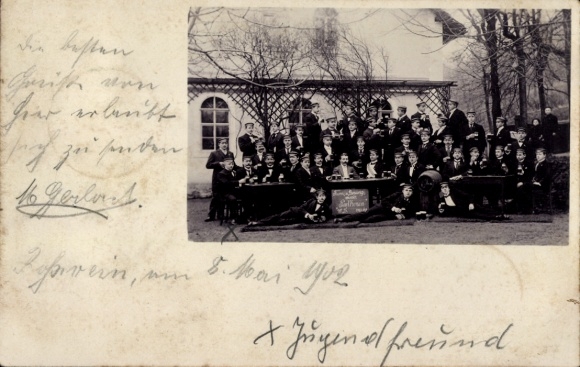 die besten
Grüße von
hier erlaubt
sich zu senden
M Gerlach.
Roßwein, am 8. Mai 1902
x Jugendfreund